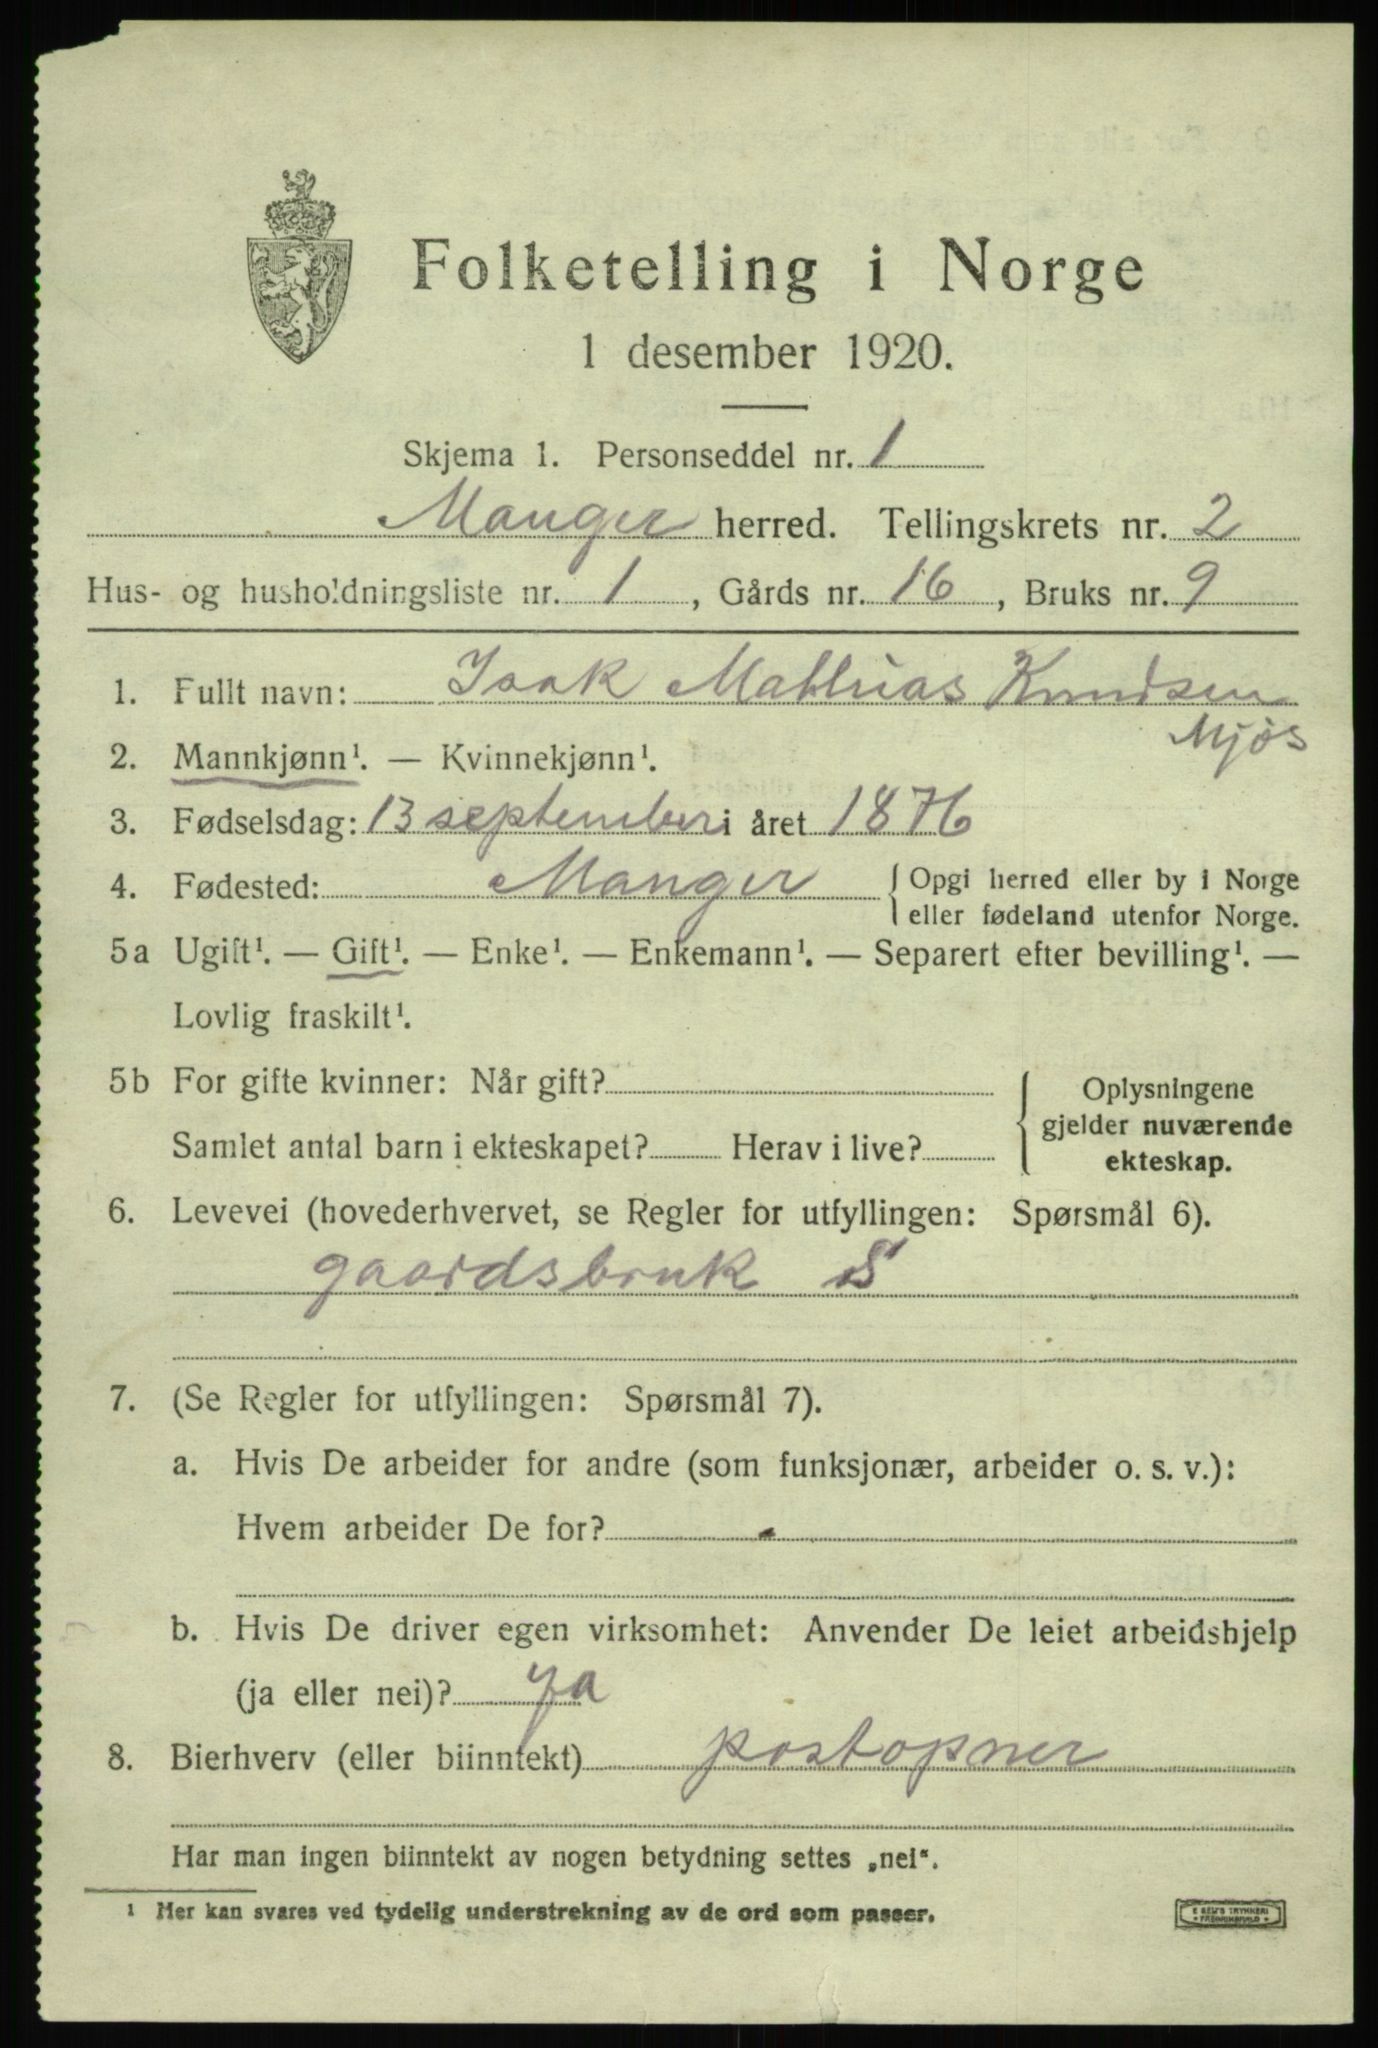 Folketelling i Norge
1 desember 1920.
Skjema 1. Personseddel nr. 1
Manger herred. Tellingskrets nr. 2
Hus- og husholdningsliste nr. 1, Gårds nr. 16, Bruks nr. 9
1. Fullt navn: Isak Mathias Knudsen
Mjøs
2. Mannkjønn¹. — Kvinnekjønn¹.
3. Fødselsdag: 13 september i året 1876
4. Fødested: Manger { Opgi herred eller by i Norge
eller fødeland utenfor Norge.
5a Ugift¹. — Gift¹. — Enke¹. — Enkemann¹. — Separert efter bevilling¹. —
Lovlig fraskilt¹.
5b For gifte kvinner: Når gift? { Oplysningene
gjelder nuværende
Samlet antal barn i ekteskapet? Herav i live?
ekteskap.
6. Levevei (hovederhvervet, se Regler for utfyllingen: Spørsmål 6).
gaardsbruk S
7. (Se Regler for utfyllingen: Spørsmål 7).
a. Hvis De arbeider for andre (som funksjonær, arbeider o. s. v.):
Hvem arbeider De for?
b. Hvis De driver egen virksomhet: Anvender De leiet arbeidshjelp
(ja eller nei)? Ja
8. Bierhverv (eller biinntekt) postopner
Har man ingen biinntekt av nogen betydning settes „nei“.
¹ Her kan svares ved tydelig understrekning av de ord som passer.
E SEM'S TRYKKERI
FREDRIKSHALD